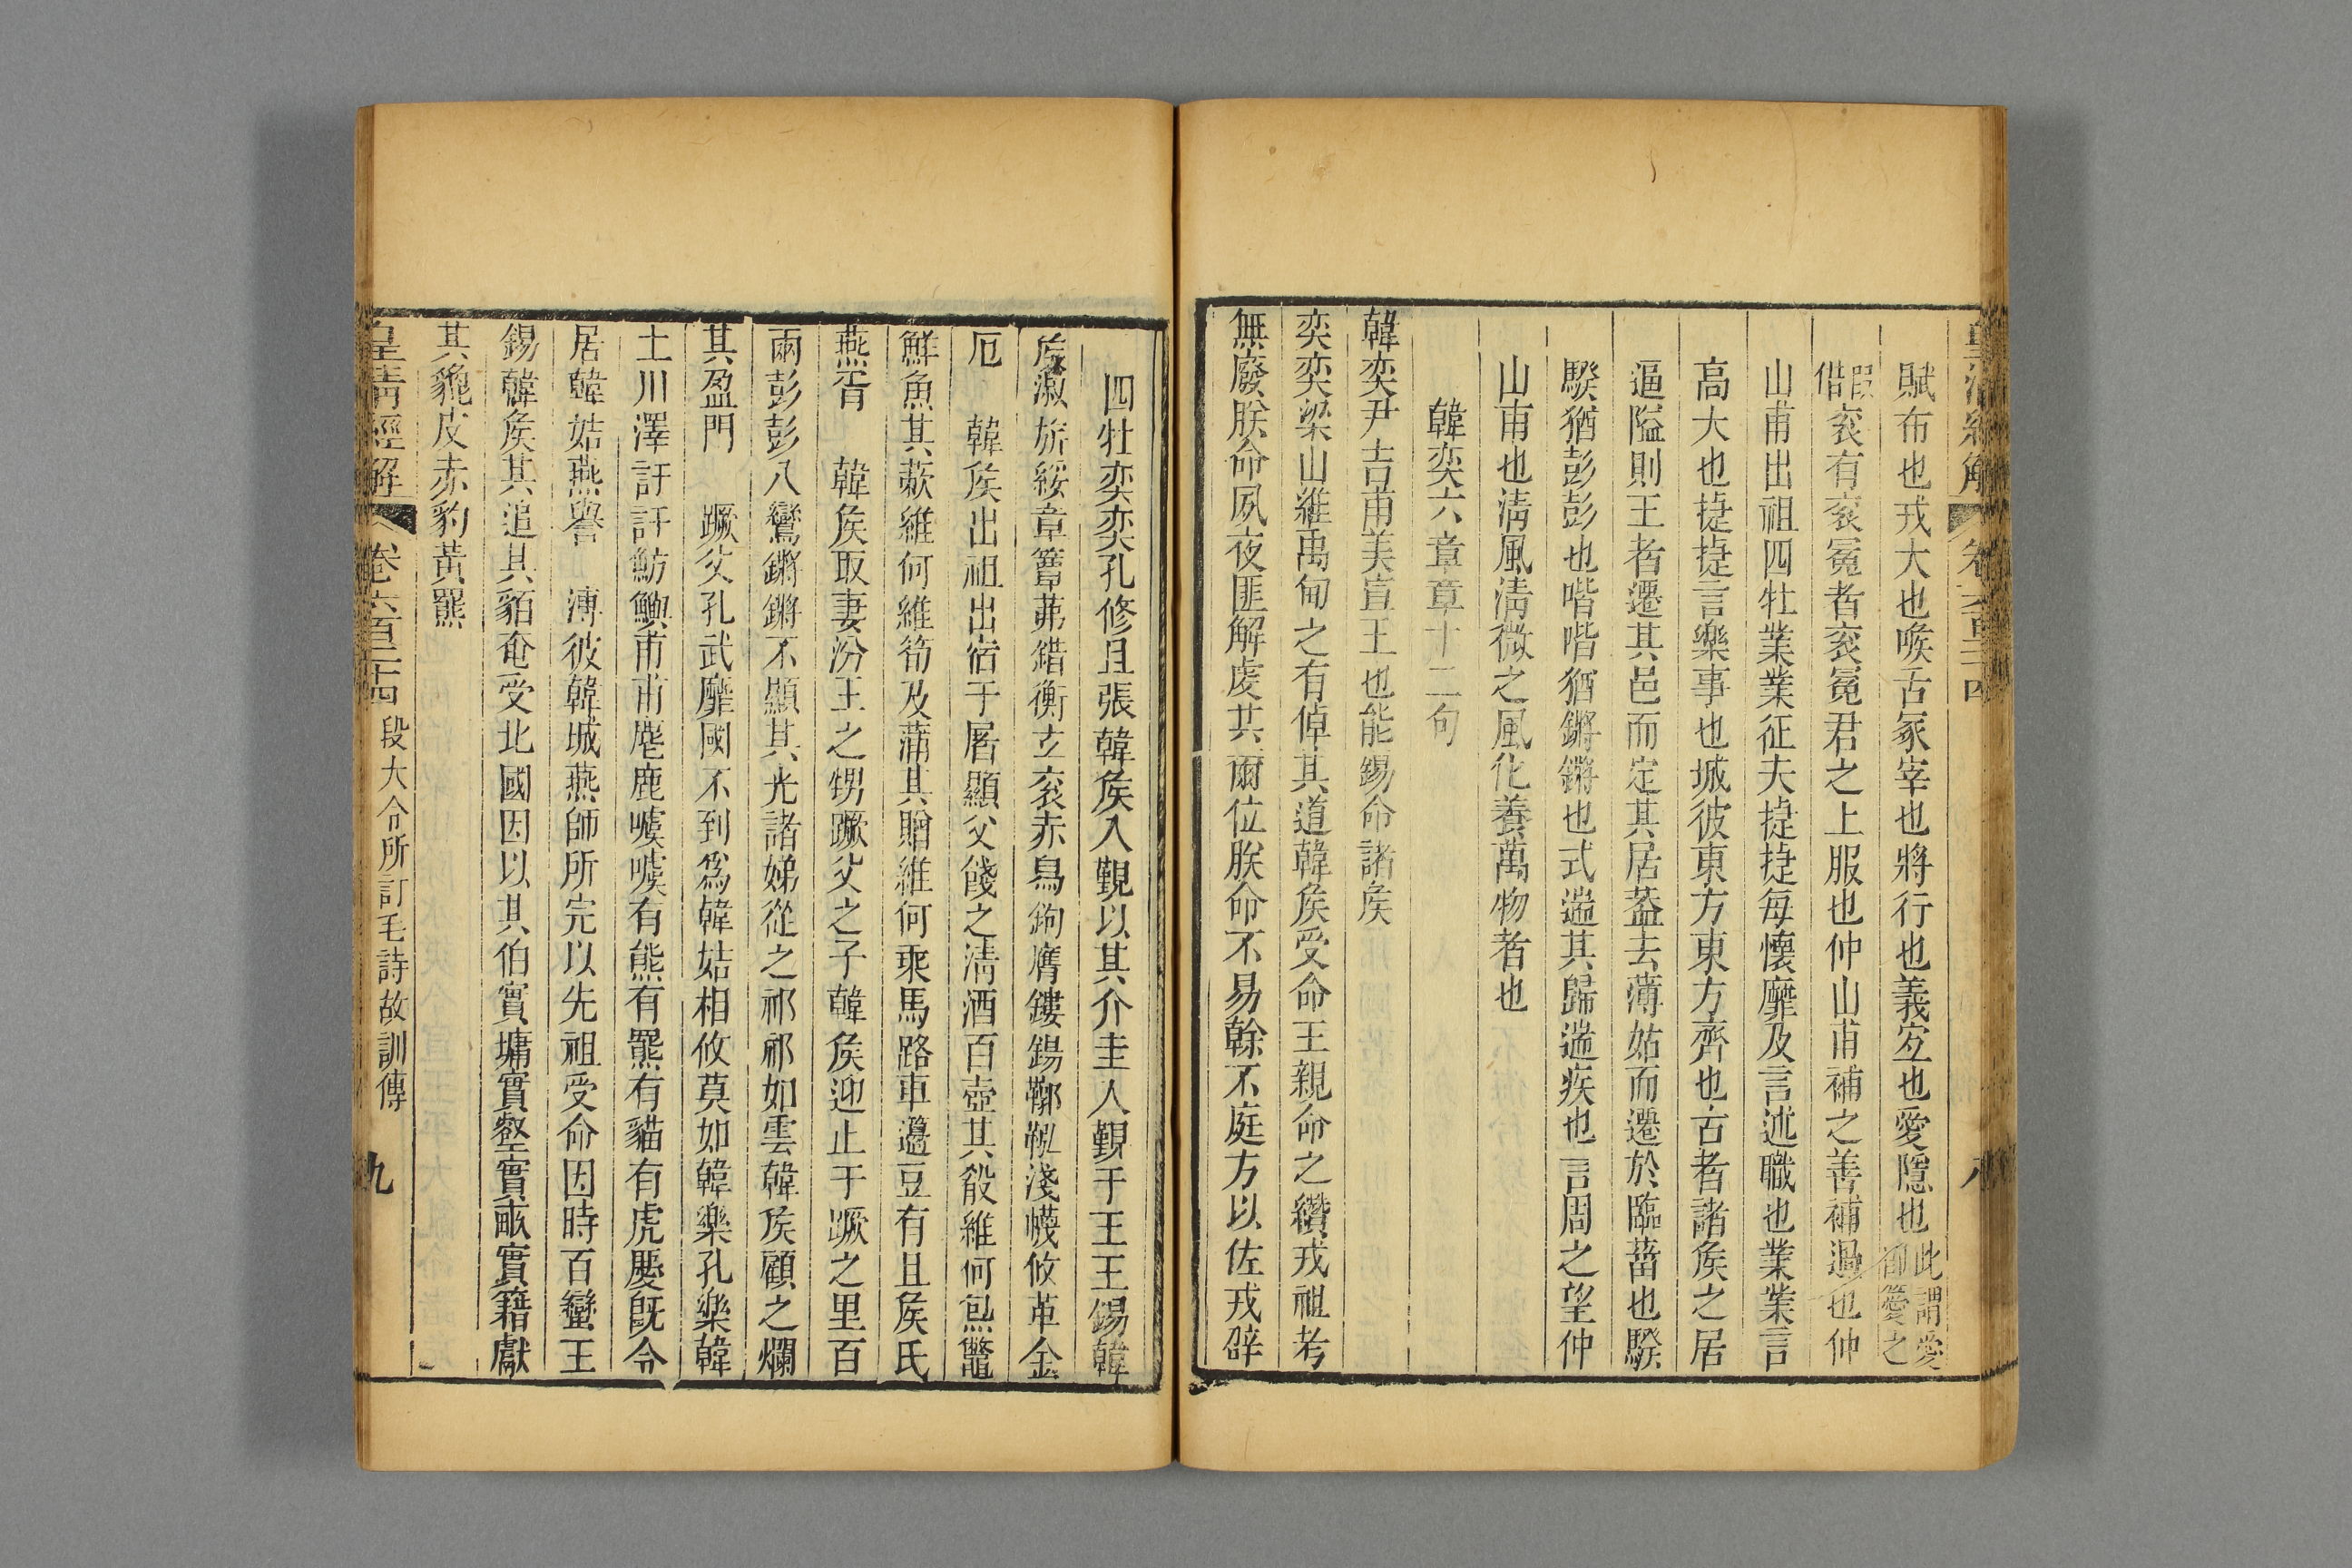 皇清經解 卷六百三十四 八
賦布也戎大也喉古冢宰也將行也義宐也愛隱也此謂愛卽薆之
叚借袞有袞冕者袞冕君之上服也仲山甫補之善補過也仲
山甫出祖四牡業業征夫捷捷每懷靡及言述職也業業言
高大也捷捷言樂事也城彼東方東方齊也古者諸矦之居
逼隘則王者遷其邑而定其居蓋去薄姑而遷於臨菑也騤
騤猶彭彭也喈喈猶鏘鏘也式遄其歸遄疾也言周之望仲
山甫也淸風淸微之風化養萬物者也
韓奕六章章十二句
韓奕尹吉甫美宣王也能錫命諸矦
奕奕梁山維禹甸之有倬其道韓矦受命王親命之纘戎祖考
無廢朕命夙夜匪解虔共爾位朕命不易榦不庭方以佐戎辟
四牡奕奕孔修且張韓矦入覲以其介圭入覲于王王錫韓
矦淑旂綏章簟茀錯衡玄袞赤舄鉤膺鏤鍚鞹鞃淺幭攸革金
厄　韓矦出祖出宿于屠顯父餞之淸酒百壺其殽維何炰鼈
鮮魚其蔌維何維筍及蒲其贈維何乘馬路車籩豆有且矦氏
燕胥　韓矦取妻汾王之甥蹶父之子韓矦迎止于蹶之里百
兩彭彭八鸞鏘鏘不顯其光諸娣從之祁祁如雲韓矦顧之爛
其盈門　蹶父孔武靡國不到爲韓姞相攸莫如韓樂孔樂韓
土川澤訏訏魴鱮甫甫麀鹿噳噳有熊有羆有貓有虎慶旣令
居韓姞燕譽　溥彼韓城燕師所完以先祖受命因時百蠻王
錫韓矦其追其貊奄受北國因以其伯實墉實壑實畝實籍獻
其貔皮赤豹黃羆
皇清經解 卷六百三十四 段大令所訂毛詩故訓傳 九